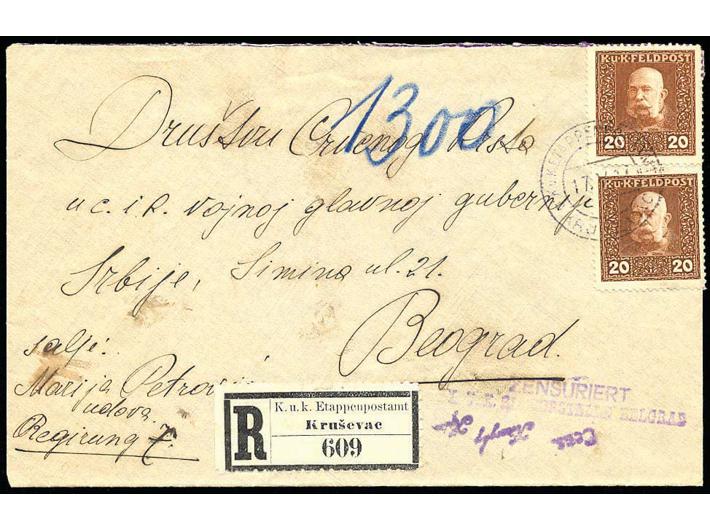 1300
K.u.K.FELDPOST
20 20
K.u.K.FELDPOST
20 20
Društvu Crvenog Krsta
u c. i k. vojnoj glavnoj guberniji
Srbije, Simina ul. 21.
Beograd.
salje:
Marija Petrović
udova
Regirung 7.
R
K. u. k. Etappenpostamt
Kruševac
609
ZENSURIERT
BELGRAD